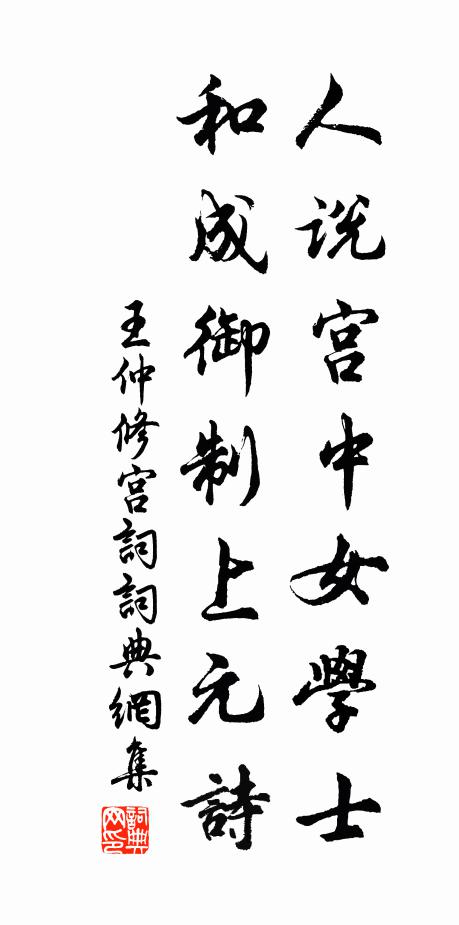 人说宫中女學士
和成御制上元詩
王仲修宫詞詞典網集
詞典网印